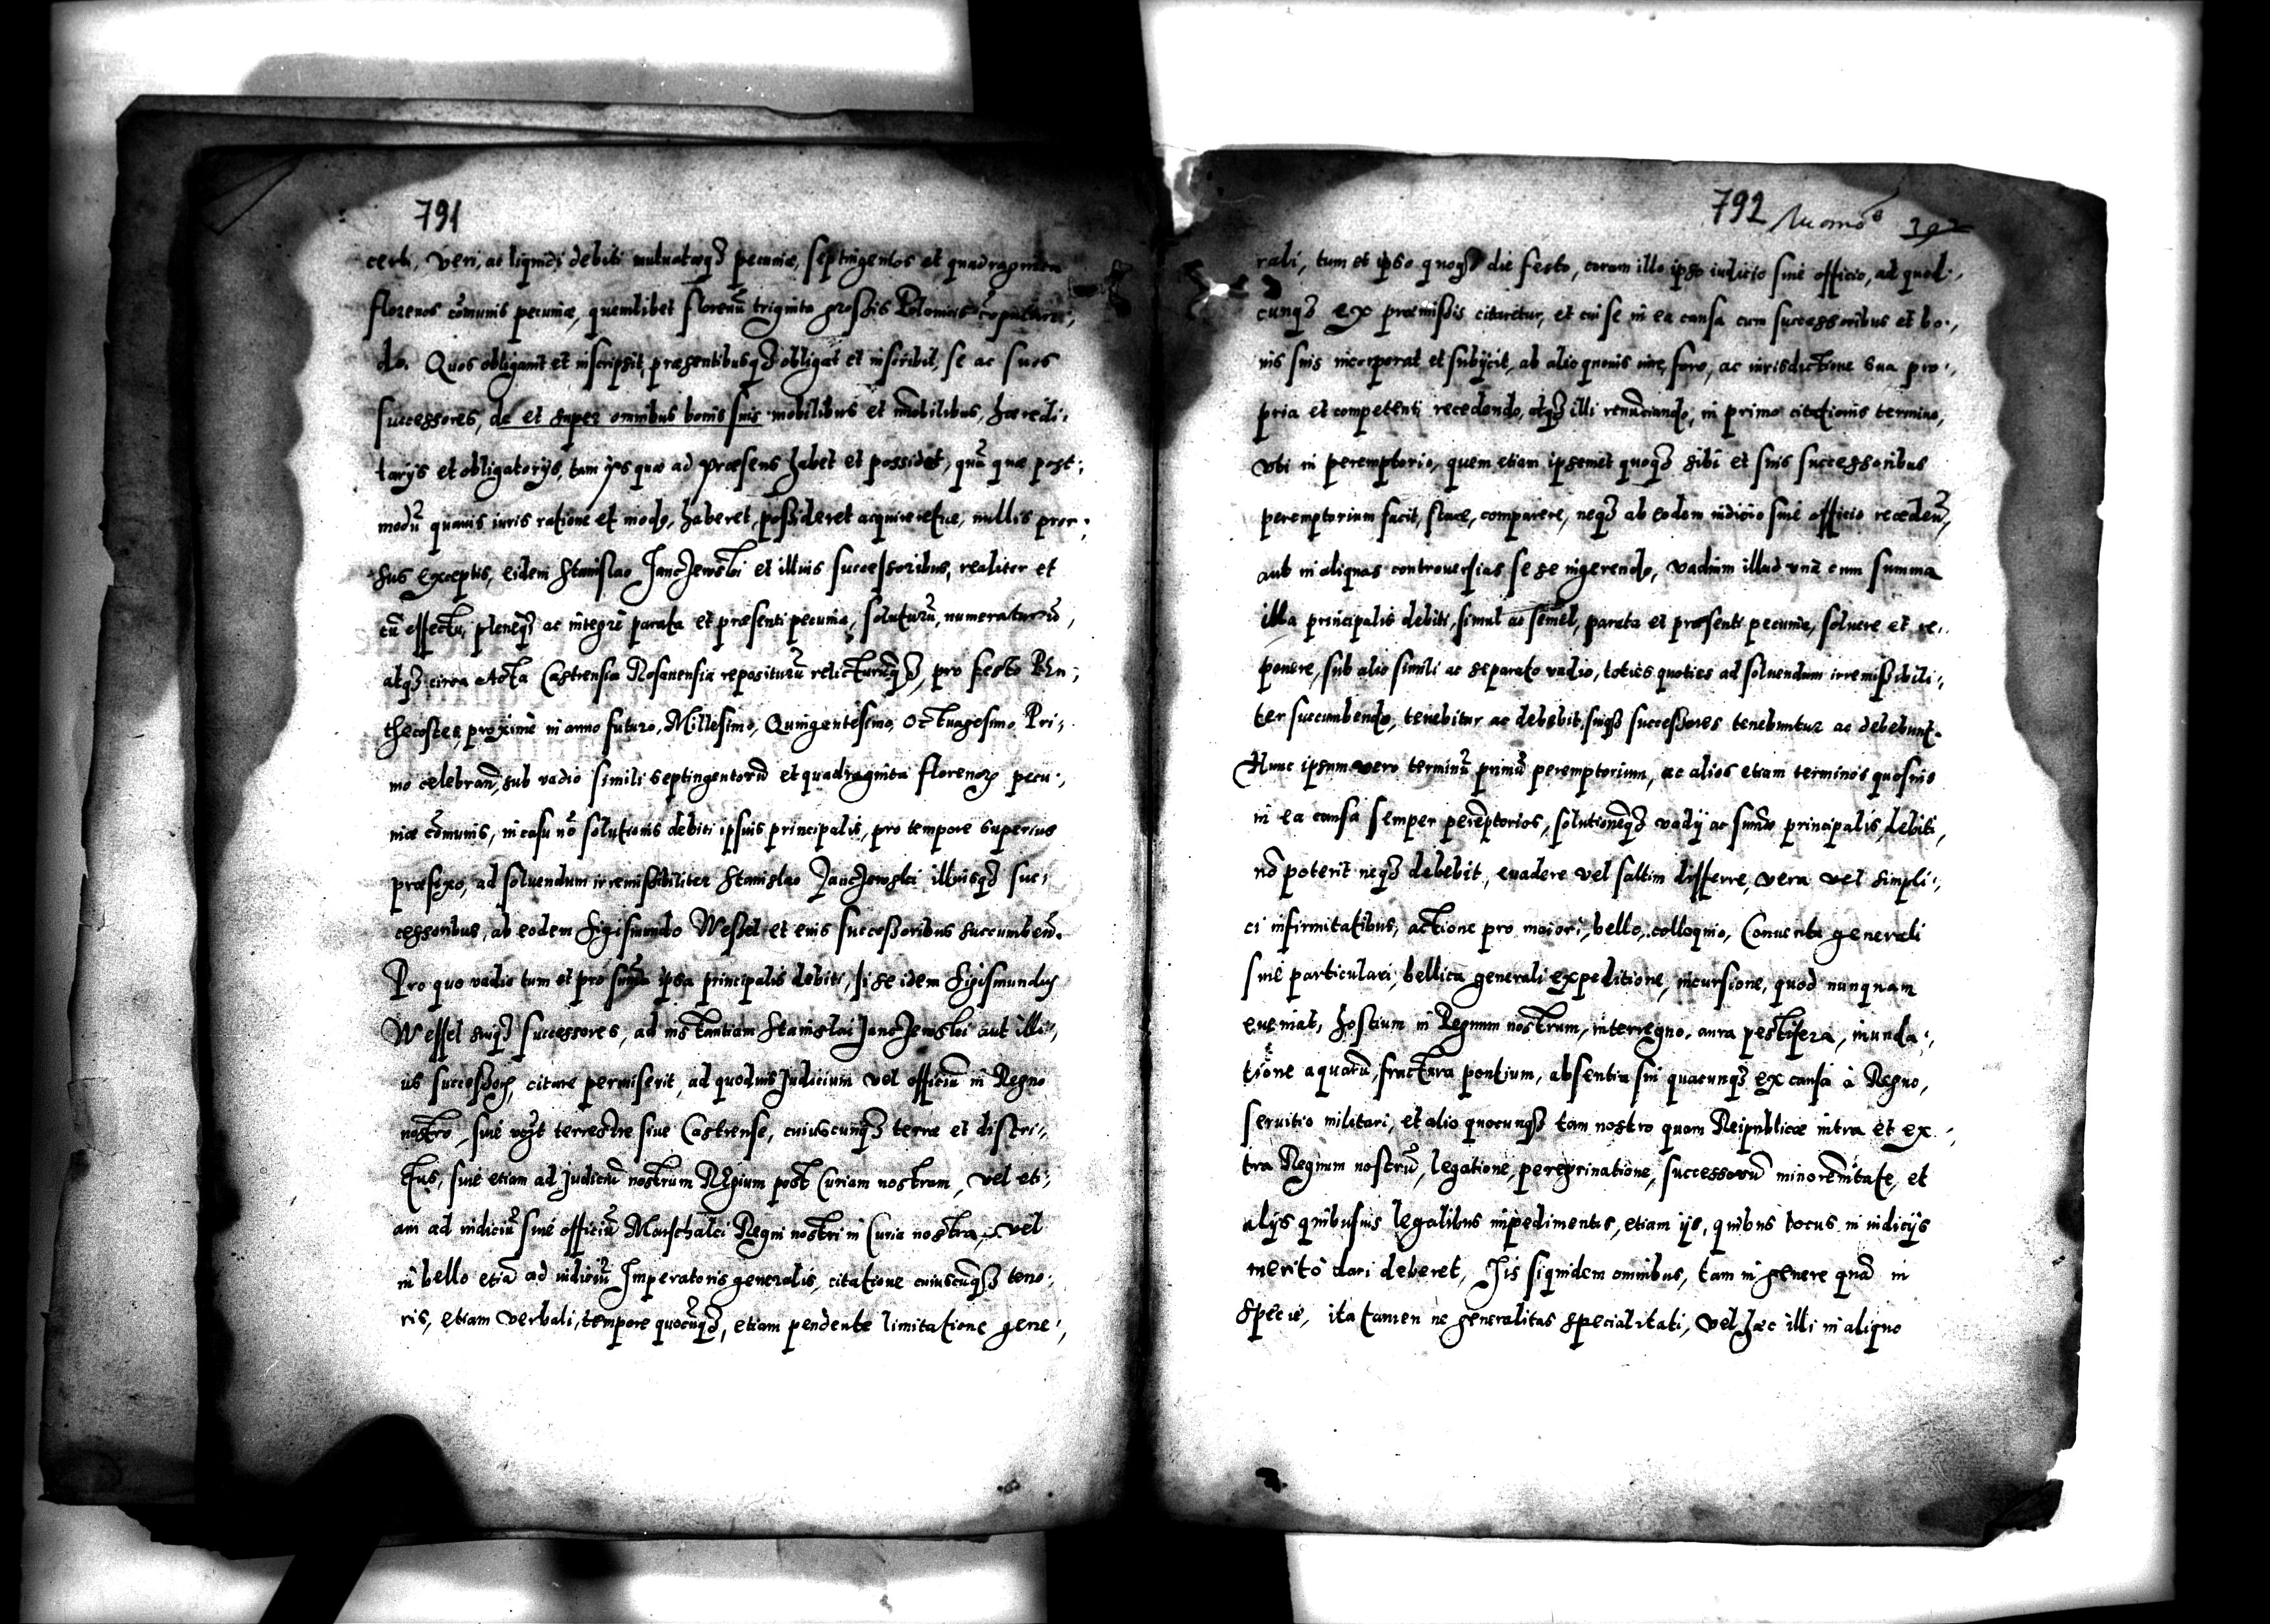 791
certi, veri, ac liquidi debiti mutuatæq3 pecuniæ, septingentos et quadraginta
florenos cõmunis pecuniæ, quemlibet florenũ triginta grossis Polonicis cõputan-
do. Quos obligavit et inscripsit, præsentibusq3 obligat et inscribit, se ac suos
successores, de et super omnibus bonis suis mobilibus et īmobilibus, hæredi-
tarys et obligatorijs, tam ys quæ ad præsens habet et possidet, quã quæ post-
modũ quavis iuris ratione et modo, haberet, possideret acquireretue, nullis pror-
sus exceptis, eidem Stanislao Janczewski et illius successoribus, realiter et
cũ effectu, pleneq3 ac integre parata et præsenti pecunia, soluturũ, numeraturũ,
atq3 circa Acta Castrensia Rosanensia repositurũ relicturũq3, pro festo Pen-
thecostes, proxime in anno futuro, Millesimo, Quingentesimo, Octuagesimo Pri-
mo celebran̄, sub vadio simili septingentorũ et quadraginta florenoꝝ pecu-
niæ cõmunis, in casu nõ solutionis debiti ipsius principalis, pro tempore superius
præfixo, ad soluendum irremissibiliter Stanislao Janczewski illiusq3 suc-
cessoribus, ab eodem Sigismundo Wessel et eius successoribus succumben̄.
Pro quo vadio tum et pro sum̄a ipsa principalis debiti, si se idem Sigismundus
Wessel suiq3 successores, ad instantiam Stanislai Janczewski aut illi-
us successoꝝ, citare permiserit, ad quoduis Judicium vel officiũ in Regno
nostro, siue terrestre siue Castrense, cuiuscunq3 terræ et distri-
ctus, siue etiam ad Judiciũ nostrum Regium post Curiam nostram, vel eti-
am ad iudiciũ siue officiũ Marschalci Regni nostri in Curia nostra, vel
in bello etiã ad iudiciũ Imperatoris generalis, citatione cuiuscũq3 teno-
ris, etiam verbali, tempore quocũq3, etiam pendente limitatione gene-
792
rali, tum et ipso quoq3 die festo, coram illo ipso iudicio siue officio, ad quod-
cunq3 ex præmissis citaretur, et cui se in ea causa cum successoribus et bo-
nis suis incorporat et subijcit, ab alio quouis iure, foro, ac iurisdictione sua pro-
pria et competenti recedendo, atq3 illi renũciando, in primo citationis termino,
vti in peremptorio, quem etiam ipsemet quoq3 sibi et suis successoribus
peremptorium facit, stare, comparere, neq3 ab eodem iudicio siue officio receden̄,
aut in aliquas controuersias se se ingerendo, vadium illud vna cum summa
illa principalis debiti, simul ac semel, parata et præsenti pecunia, soluere et re-
ponere, sub alio simili ac separato vadio, toties quoties ad soluendum irremissibili-
ter succumbendo, tenebitur ac debebit, suiq3 successores tenebuntur ac debebunt.
Hunc ipsum vero terminũ primũ peremptorium, ac alios etiam terminos quosuis
in ea causa semper perēptorios, solutionēq3 vadij ac sum̄æ principalis debiti,
nõ poterit neq3 debebit, euadere vel saltim differre, vera vel simpli-
ci infirmitatibus, actione pro maiori, bello, colloquio, Conuentu generali
siue particulari, bellica generali expeditione, incursione, quod nunquam
eueniat, hostium in Regnum nostrum, interregno, aura pestifera, inunda-
tione aquarũ, fractura pontium, absentia sui quacunq3 ex causa à Regno,
seruitio militari, et alio quocunq3 tam nostro quam Reipublicæ intra et ex-
tra Regnum nostrũ, legatione, peregrinatione, successorũ minorēnitate, et
alijs quibusuis legalibus impedimentis, etiam ijs, quibus locus in iudicijs
meritò dari deberet, His siquidem omnibus, tam in genere quã in
specie, ita tamen ne generalitas specialitati, vel hæc illi in aliquo